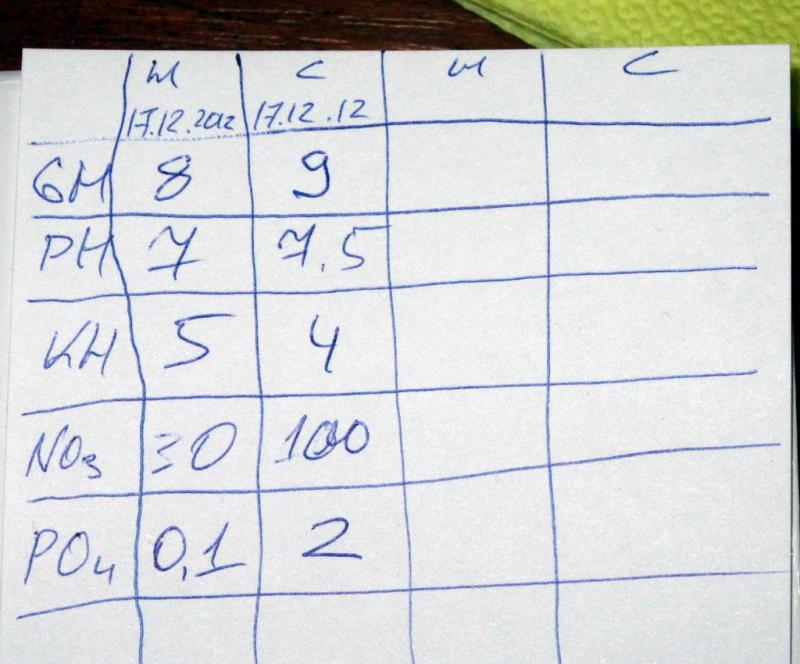 м С м С
17.12.2012 17.12.12
GH 8 9
PH 7 7.5
KH 5 4
NO₃ 30 100
PO₄ 0,1 2